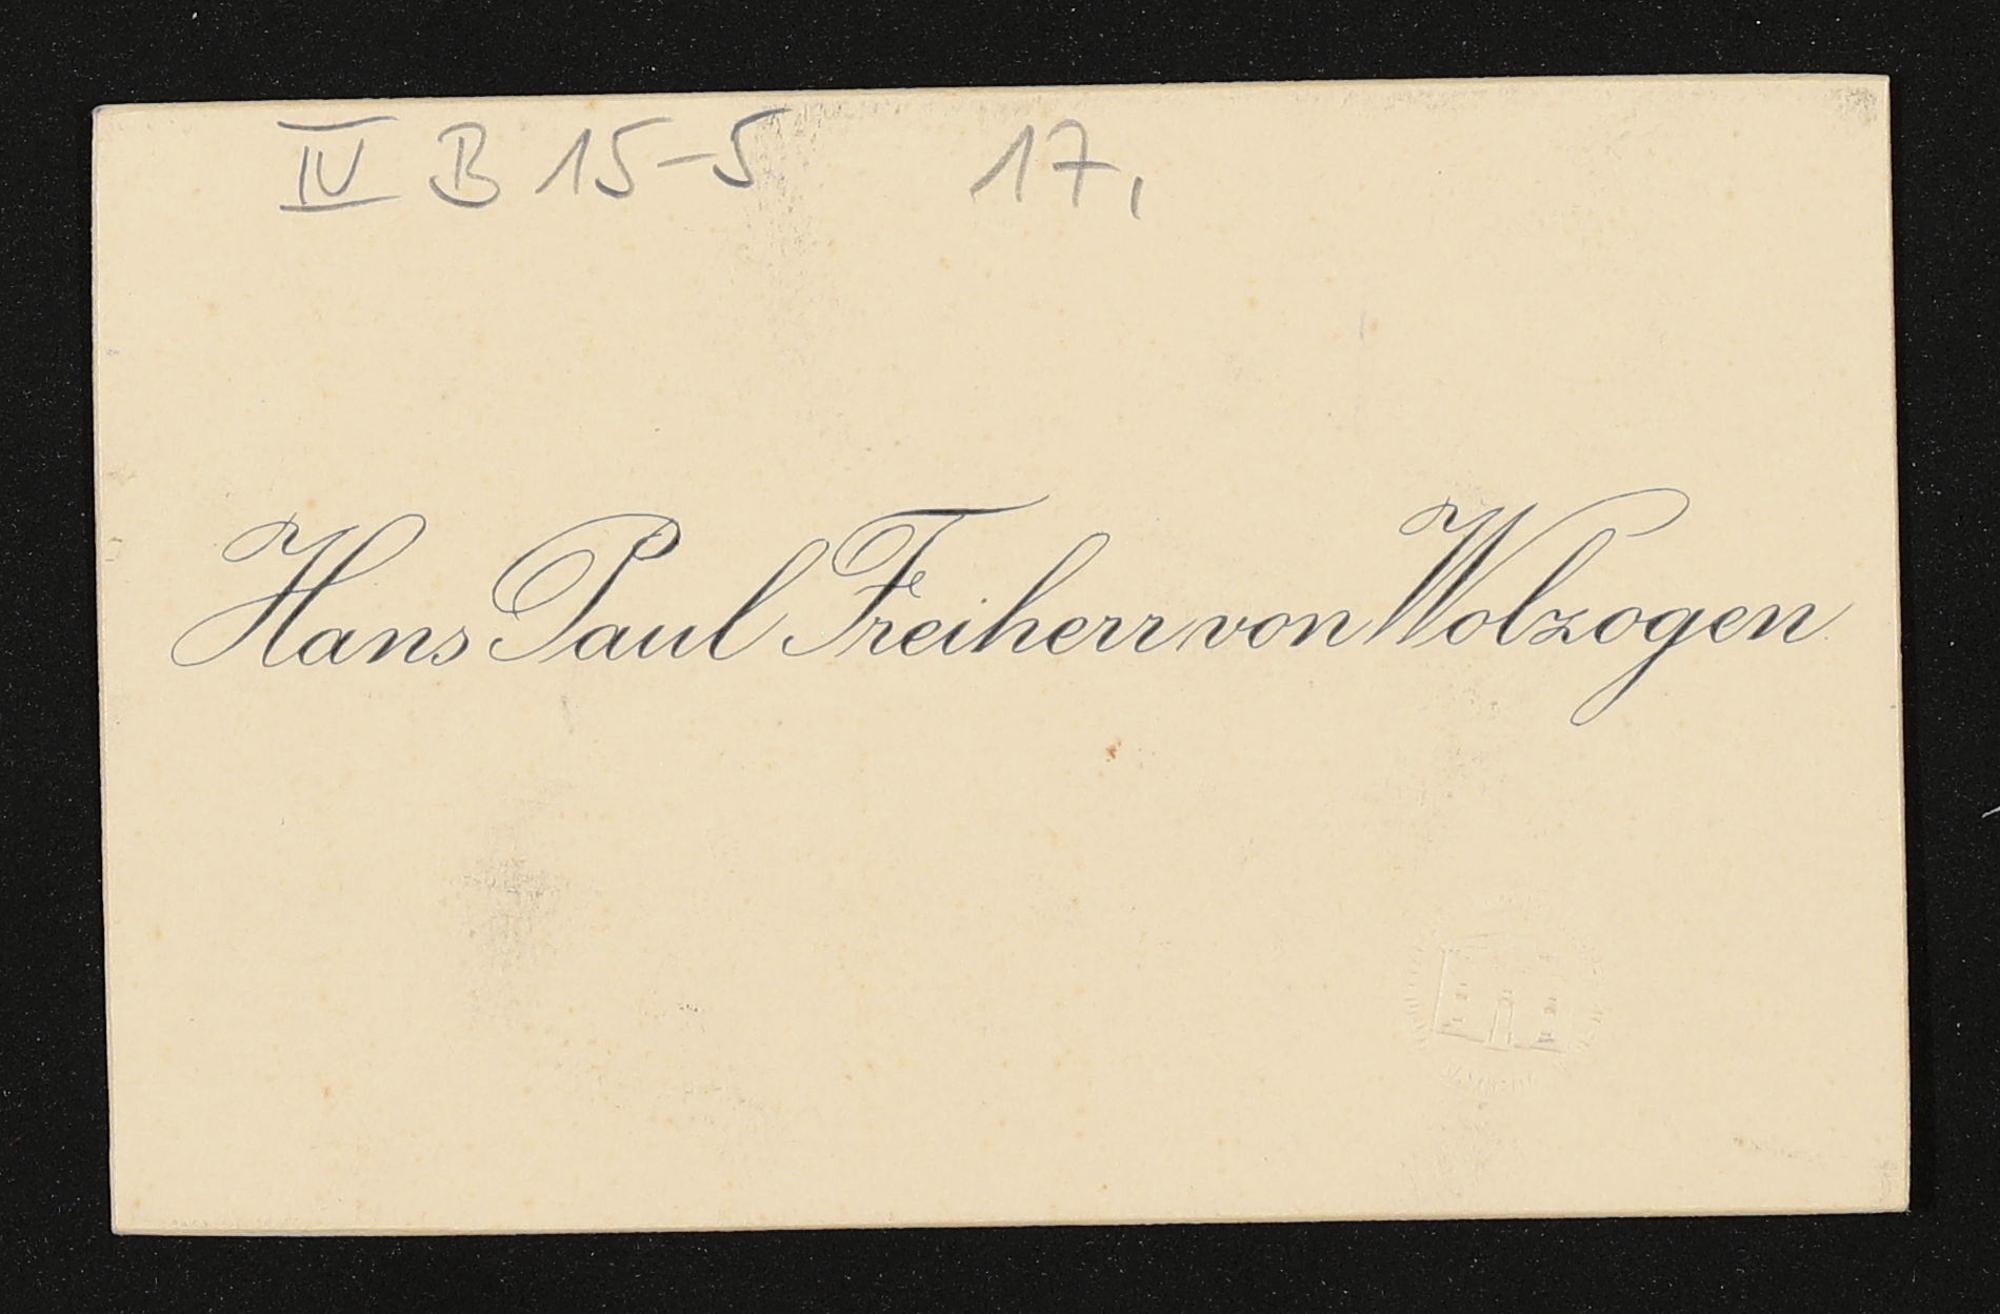 IV B 15-5 17,
Hans Paul Freiherr von Wolzogen